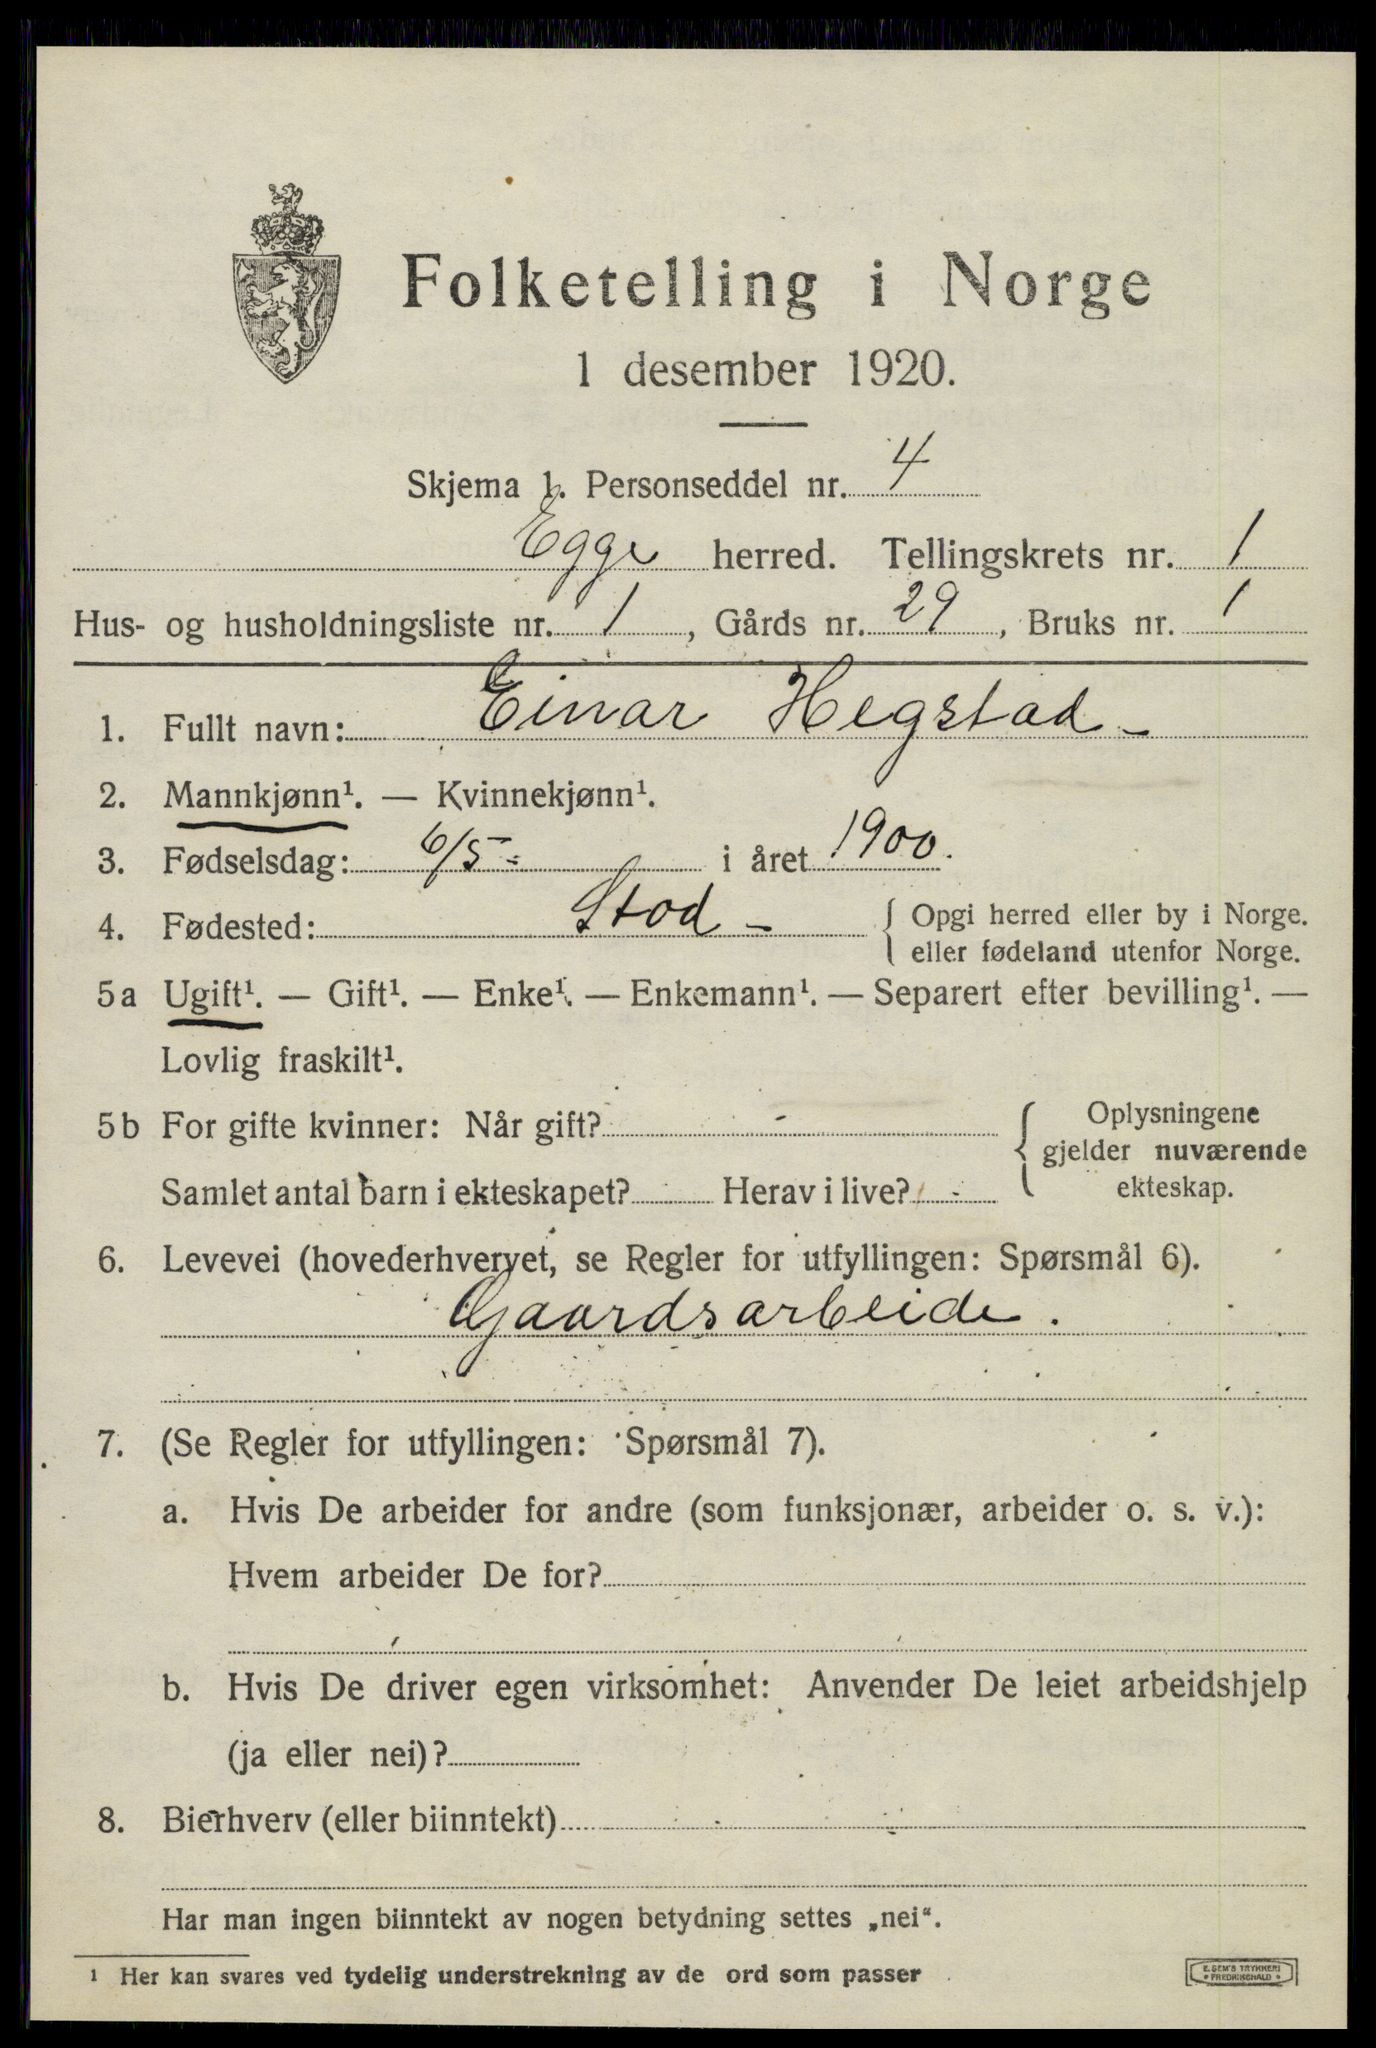 Folketelling i Norge
1 desember 1920.
Skjema 1. Personseddel nr. 4
Egge herred. Tellingskrets nr. 1
Hus- og husholdningsliste nr. 1, Gårds nr. 29, Bruks nr. 1
1. Fullt navn: Einar Hegstad -
2. Mannkjønn¹. — Kvinnekjønn¹.
3. Fødselsdag: 6/5- i året 1900.
4. Fødested: Stod - { Opgi herred eller by i Norge.
eller fødeland utenfor Norge.
5a Ugift¹. — Gift¹. — Enke¹. — Enkemann¹. — Separert efter bevilling¹. —
Lovlig fraskilt¹.
5b For gifte kvinner: Når gift? { Oplysningene
gjelder nuværende
Samlet antal barn i ekteskapet? Herav i live? ekteskap.
6. Levevei (hovederhvervet, se Regler for utfyllingen: Spørsmål 6).
Gaardsarbeide.
7. (Se Regler for utfyllingen: Spørsmål 7).
a. Hvis De arbeider for andre (som funksjonær, arbeider o. s. v.):
Hvem arbeider De for?
b. Hvis De driver egen virksomhet: Anvender De leiet arbeidshjelp
(ja eller nei)?
8. Bierhverv (eller biinntekt)
Har man ingen biinntekt av nogen betydning settes „nei“.
¹ Her kan svares ved tydelig understrekning av de ord som passer
E. SEM'S TRYKKERI
• FREDRIKSHALD •